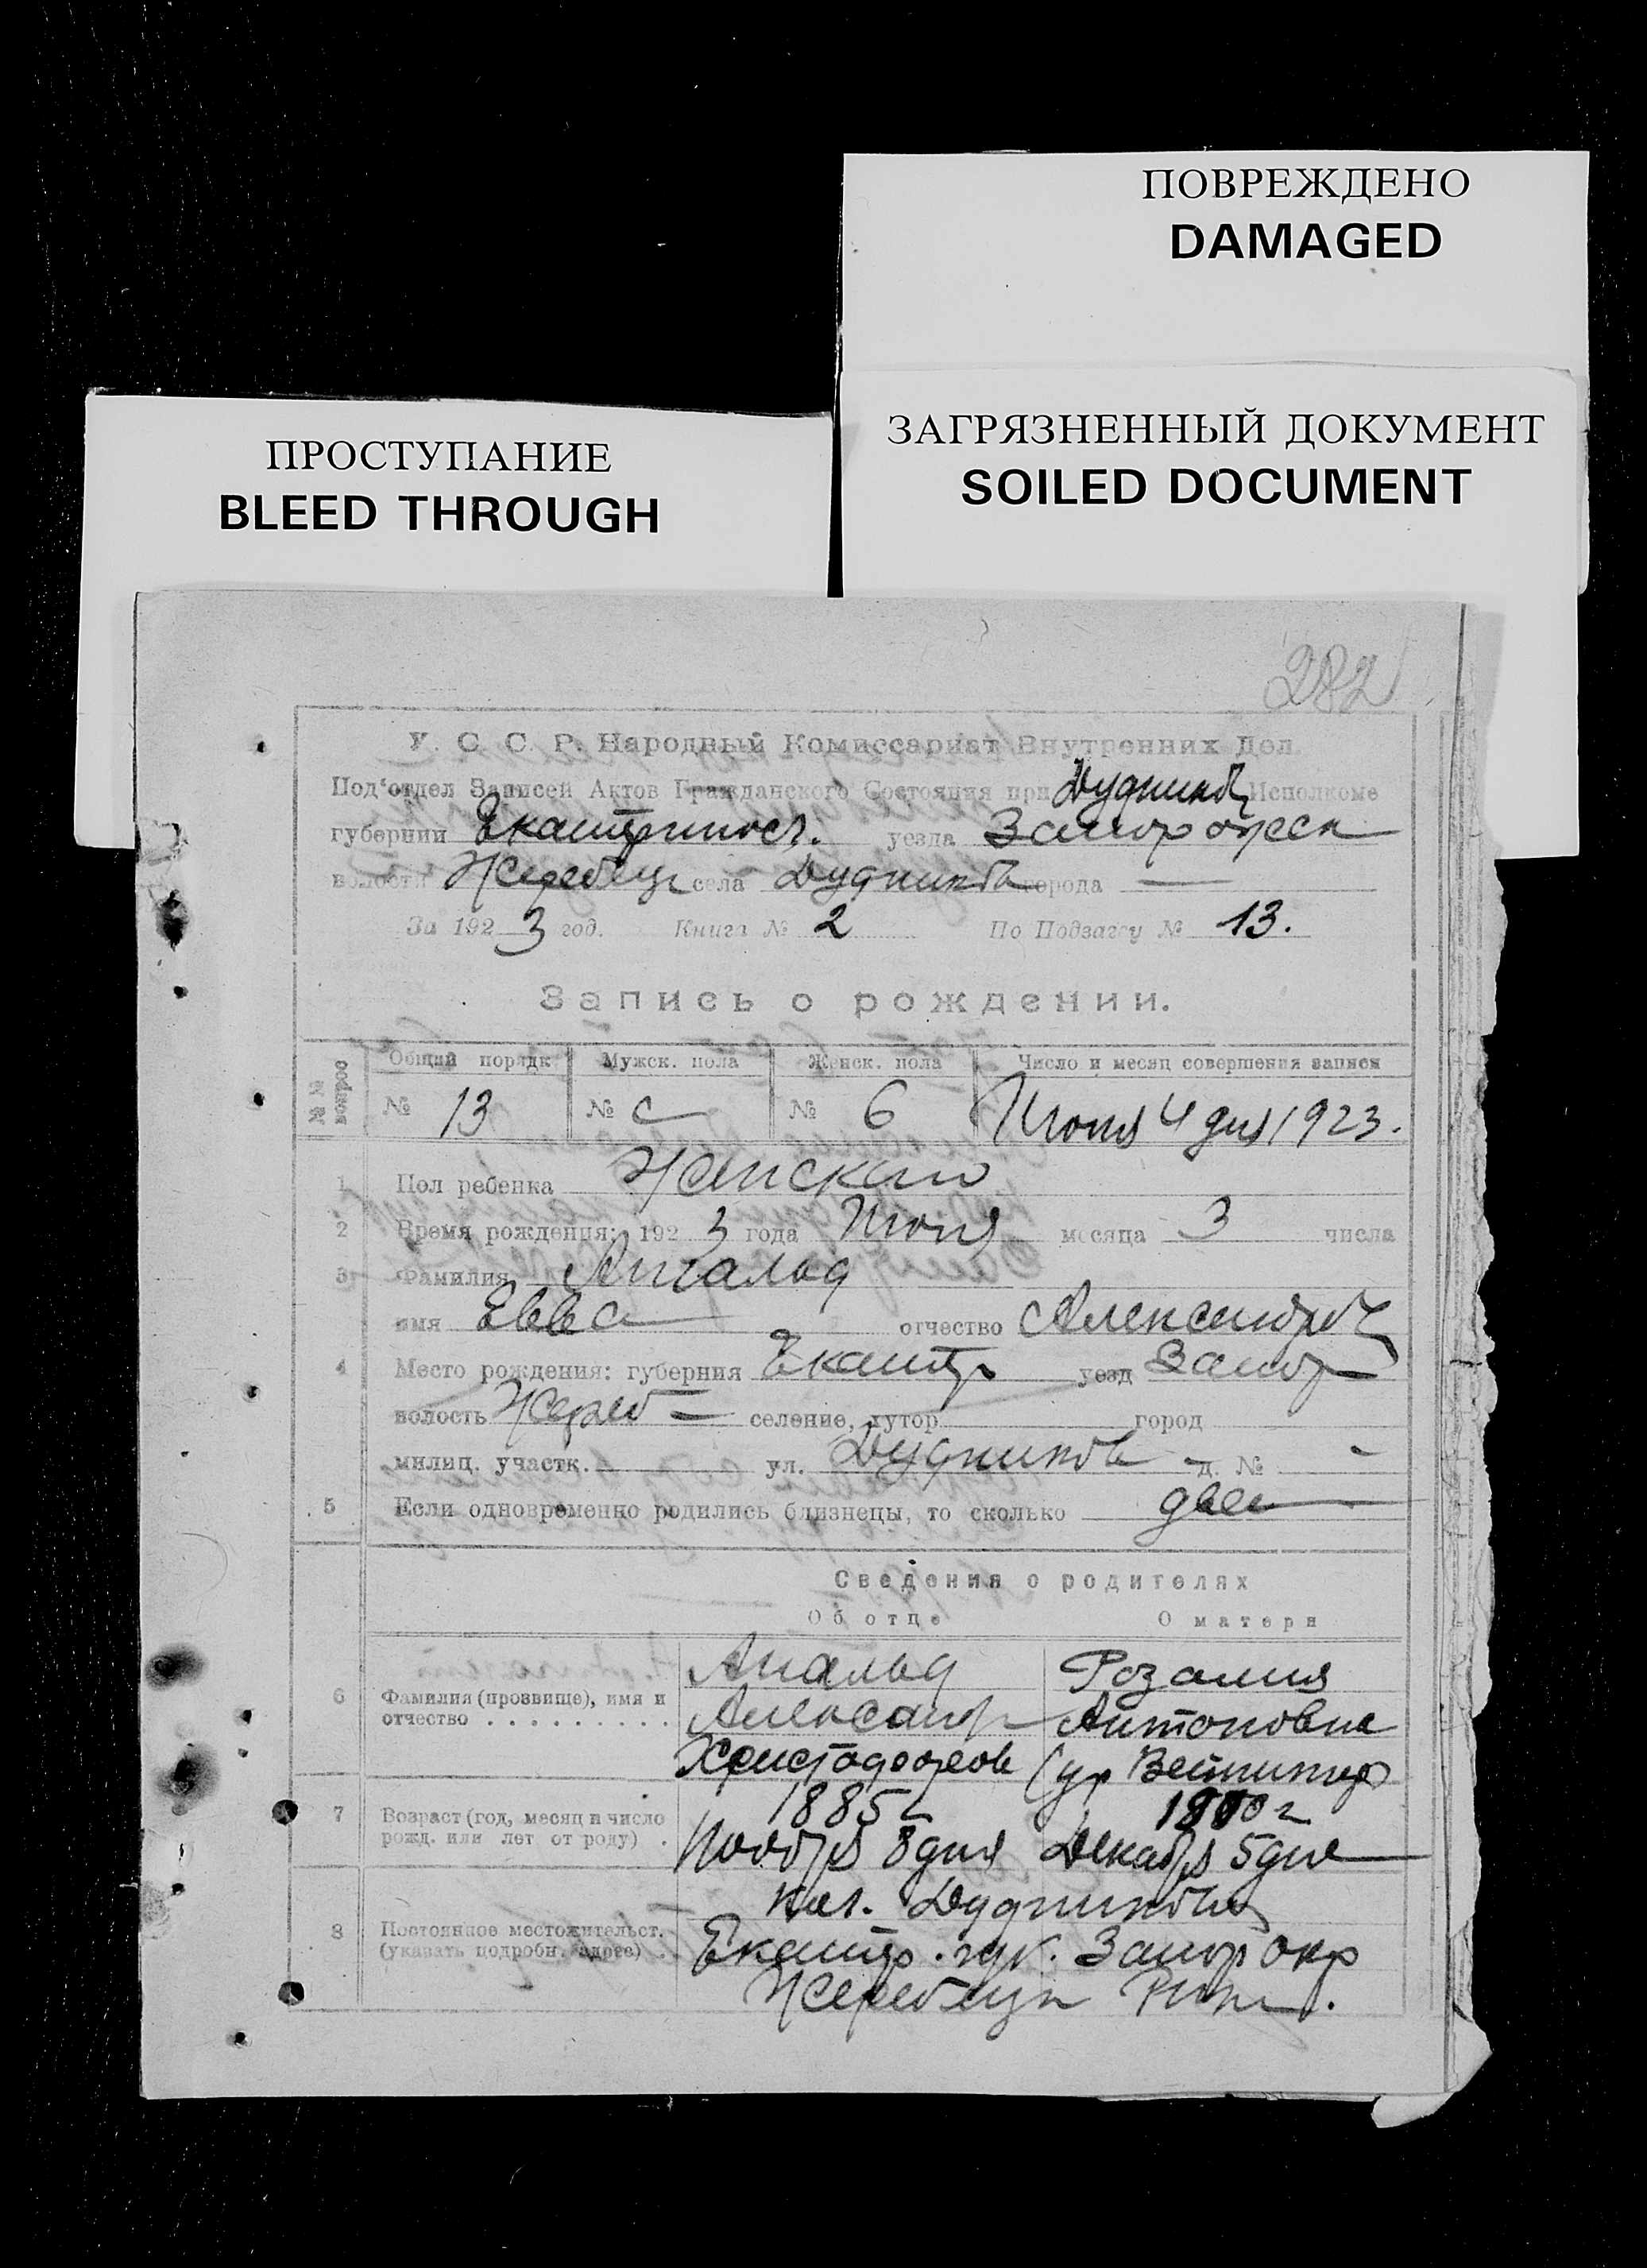 ПОВРЕЖДЕНО
DAMAGED
ЗАГРЯЗНЕННЫЙ ДОКУМЕНТ
SOILED DOCUMENT
ПРОСТУПАНИЕ
BLEED THROUGH
282
У. С. С. Р. Народный Комиссариат Внутренних Дел.
Под'отдел Записей Актов Гражданского Состояния при Дудников Исполкоме
губернии Екатеринос. уезда Запорожск
волости Жеребец села Дудников города —
За 1923 год. Книга № 2 По Подзагсу № 13.
Запись о рождении.
№№ вопросо
Общий порядк Мужск. пола Женск. пола Число и месяц совершения записи
№ 13 № № 6 Июня 4 дня 1923.
1 Пол ребенка Женский
2 Время рождения: 1923 года Июня месяца 3 числа
3 Фамилия
имя Евва отчество Александров
4 Место рождения: губерния Екатер уезд Запор
волость Жереб — селение, хутор город
милиц. участк. ул. Дудников д. № -
5 Если одновременно родились близнецы, то сколько две
Сведения о родителях
Об отце О матери
Розалия
6 Фамилия (прозвище), имя и
отчество
Александр Антоновна
Христофоров Вейнингер
1885 г
7 Возраст (год, месяц и число
рожд. или лет от роду)
Ноября 8 дня Декабря 5 дня
кол. Дудников
8 Постоянное местожительст.
(указать подробн. адрес)
Екатер. губ. Запор окр
Жеребецк